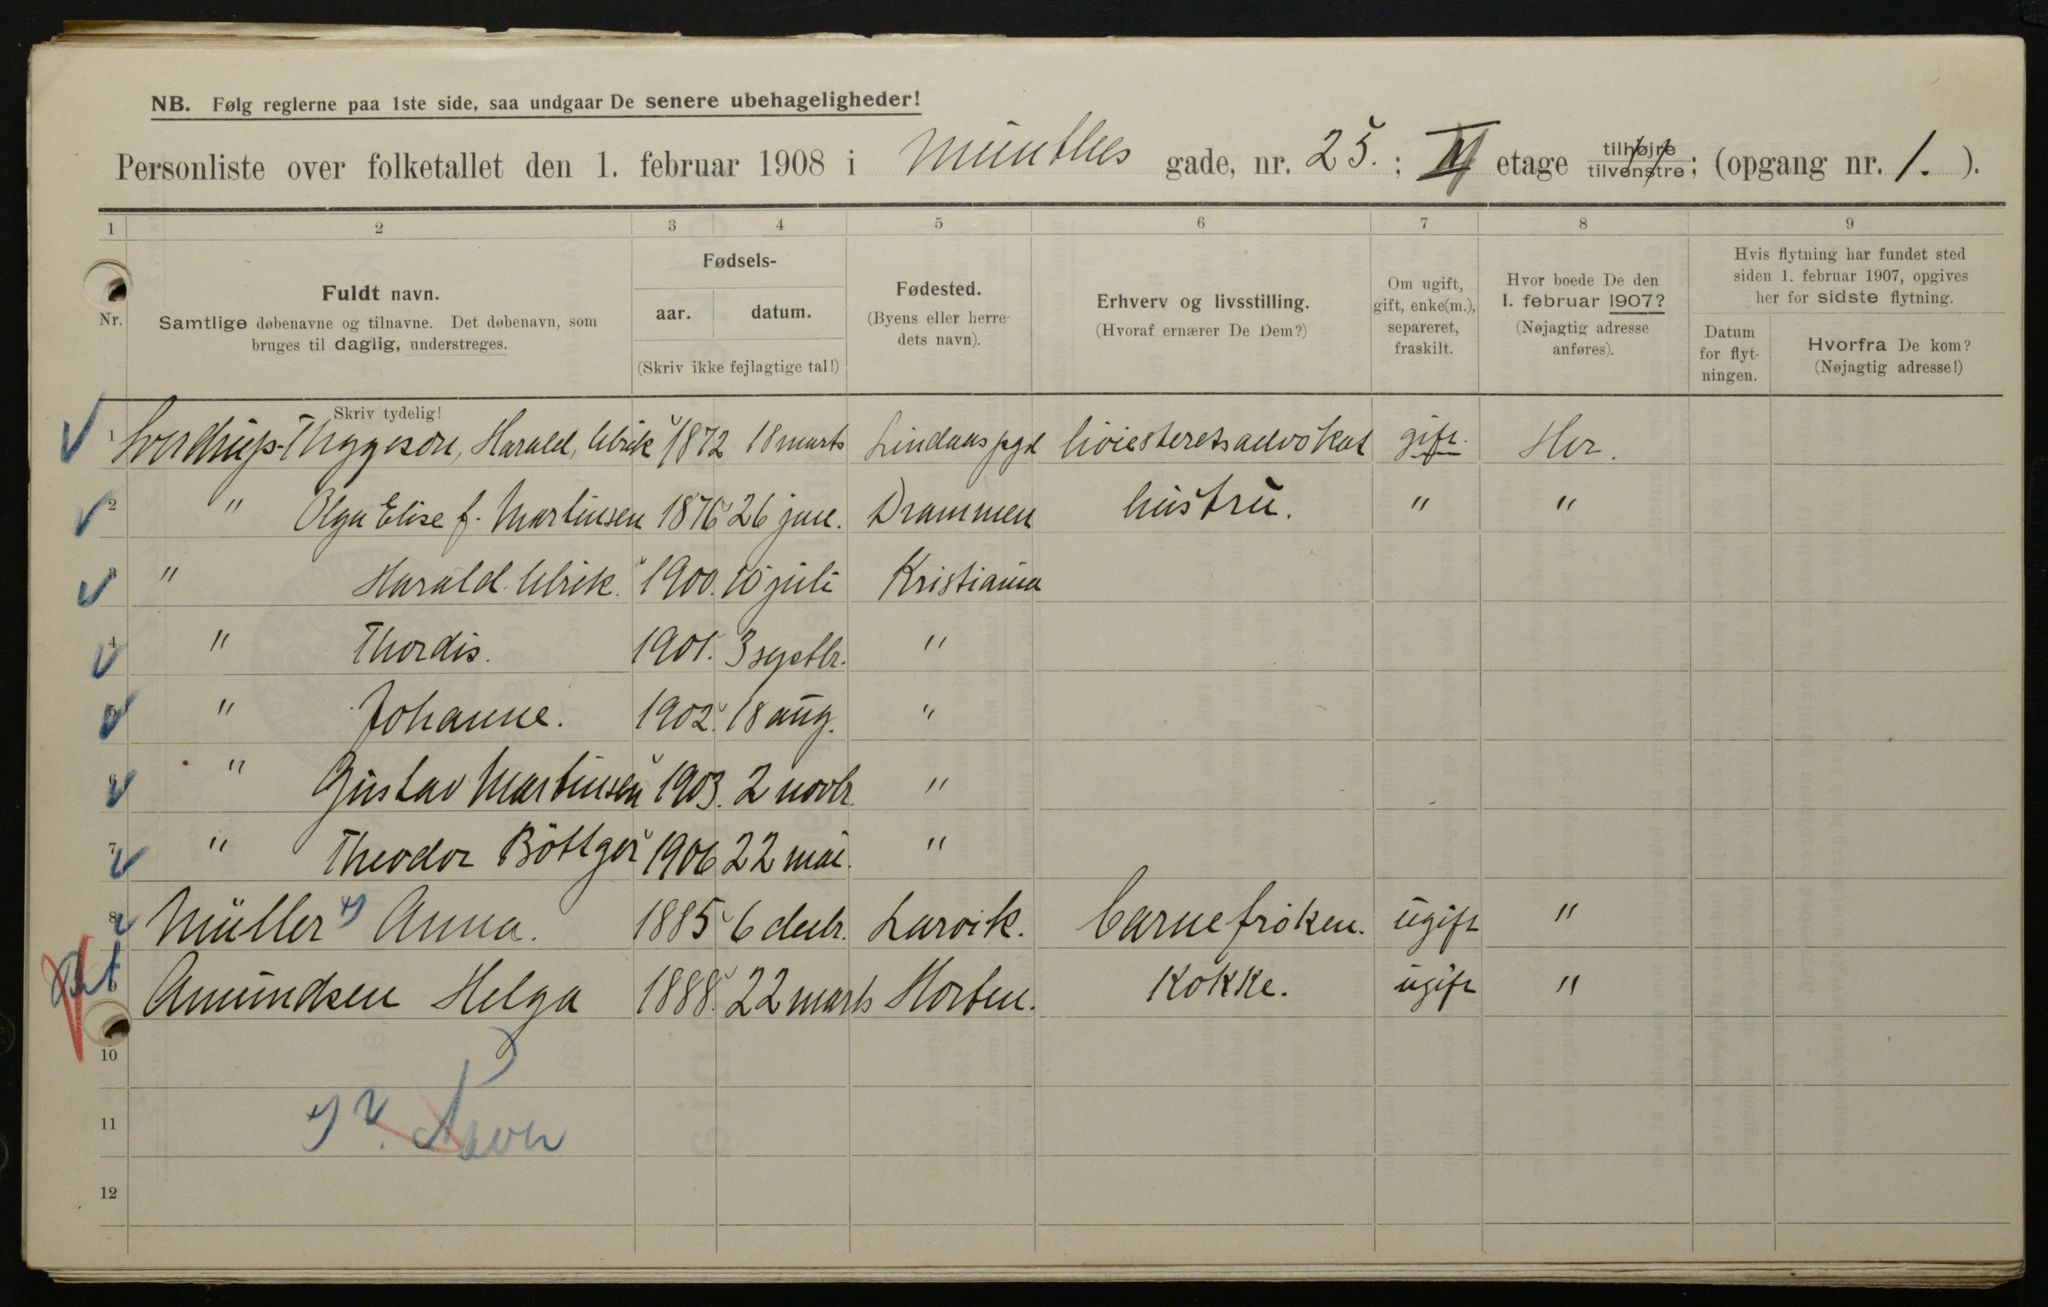 NB. Følg reglerne paa 1ste side, saa undgaar De senere ubehageligheder!
Personliste over folketallet den 1. februar 1908 i Münthes gade, nr. 25. ; etage tilhøjre tilvenstre ; (opgang nr. 1. ).
1 2 3 4 5 6 7 8 9
Nr.
Fuldt navn.
Samtlige døbenavne og tilnavne. Det døbenavn, som
bruges til daglig, understreges.
Fødsels-
aar. datum.
(Skriv ikke fejlagtige tal!)
Fødested.
(Byens eller herre-
dets navn).
Erhverv og livsstilling.
(Hvoraf ernærer De Dem?)
Om ugift,
gift, enke(m.),
separeret,
fraskilt.
Hvor boede De den
1. februar 1907?
(Nøjagtig adresse
anføres).
Hvis flytning har fundet sted
siden 1. februar 1907, opgives
her for sidste flytning.
Datum
for flyt-
ningen.
Hvorfra De kom?
(Nøjagtig adresse!)
Skriv tydelig!
1 Sverdrup-Thygeson, Harald, Ulrik 1872 18 marts Lindaas pgd høiesteretsadvokat gift. Her.
2 " Olga Elise f. Martinsen 1876 26 june. Drammen hustru. " "
3 " Harald Ulrik. 1900. 10 juli Kristiania
4 " Thordis. 1901. 3 septbr. "
5 " Johanne. 1902. 18 aug. "
6 " Gustav Martinsen 1903. 2 novbr. "
7 " Theodor Böttger 1906 22 mai. "
8 Müller Anna. 1885 6 decbr. Larvik. barnefrøken. ugift "
9 Amundsen Helga 1888. 22 marts Horten. Kokke. ugift "
10
11
12